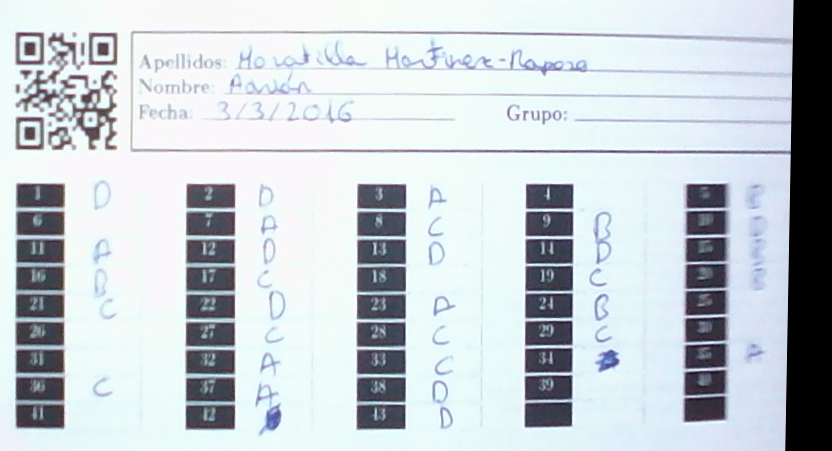 Apellidos: Moratilla Martinez-Raposo
Nombre: Adrián
Fecha: 3/3/2016 Grupo:
1 D 2 D 3 A 4 5
6 7 A 8 C 9 B 10
11 A 12 D 13 D 14 D 15
16 B 17 C 18 19 C 20
21 C 22 D 23 A 24 B 25
26 27 C 28 C 29 C 30
31 32 A 33 C 34 35 A
36 C 37 A 38 D 39 40
41 42 43 D